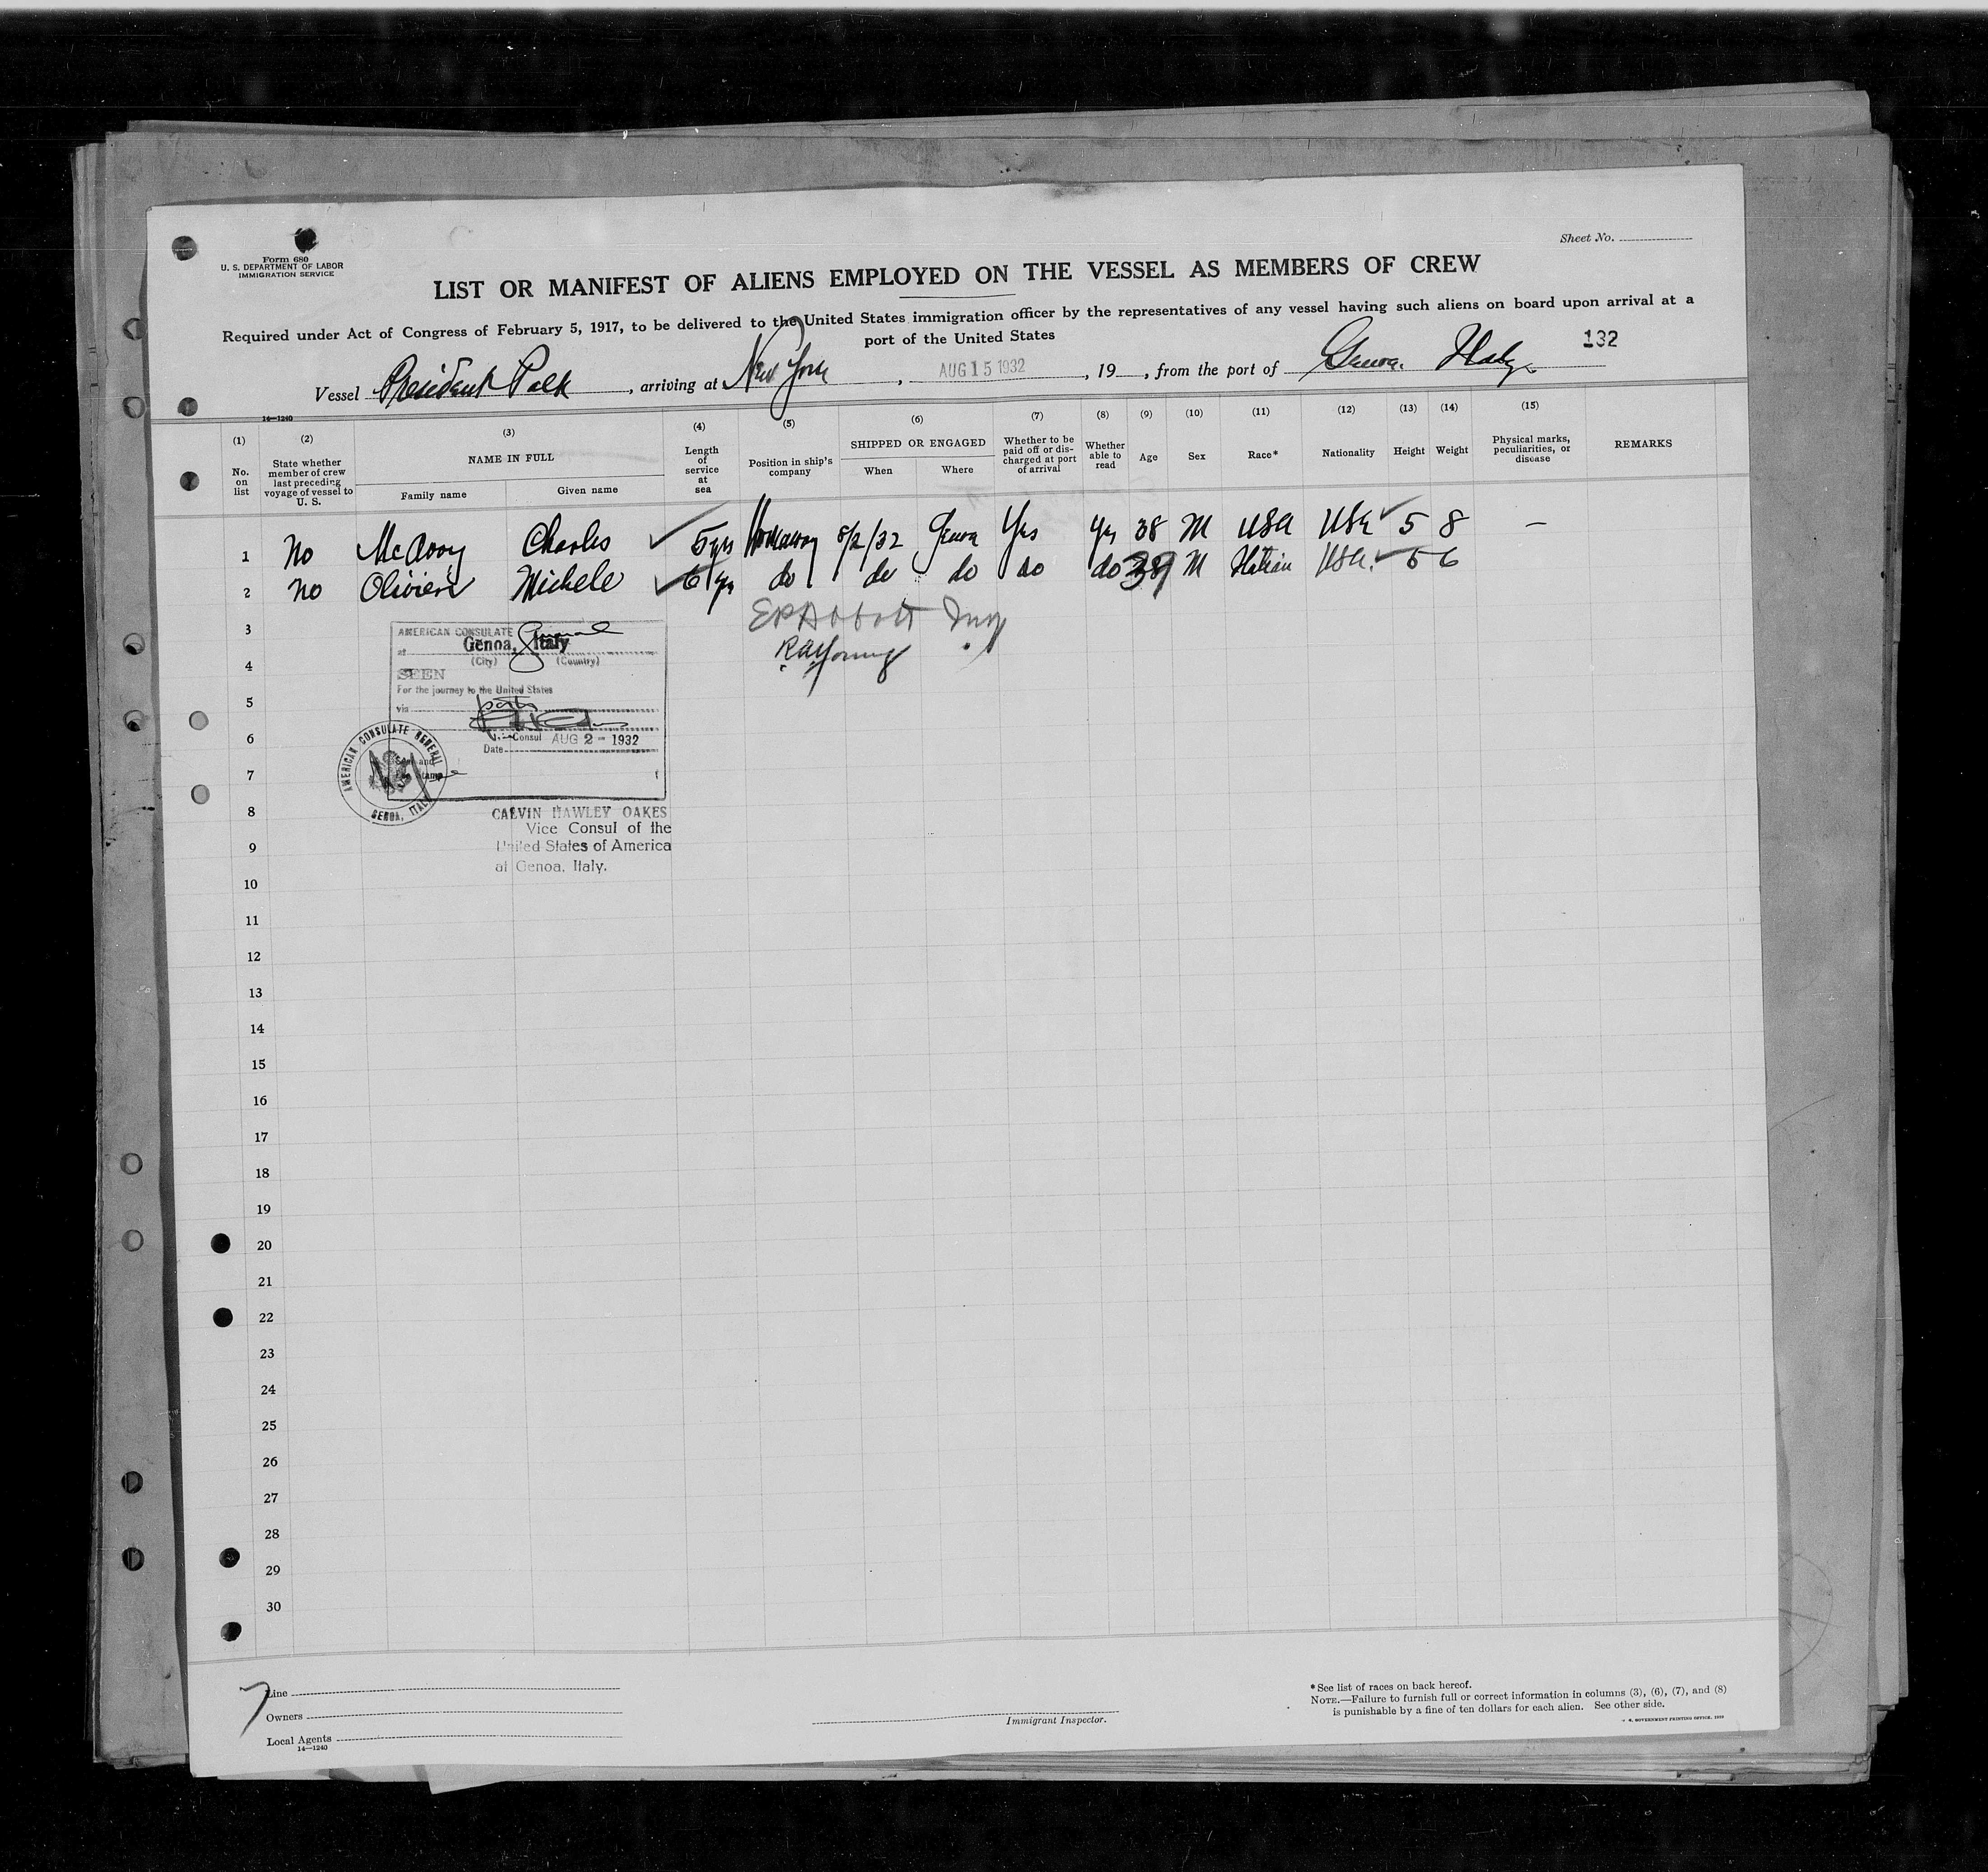 Sheet No.
Form 680
U. S. DEPARTMENT OF LABOR
IMMIGRATION SERVICE
LIST OR MANIFEST OF ALIENS EMPLOYED ON THE VESSEL AS MEMBERS OF CREW
Required under Act of Congress of February 5, 1917, to be delivered to the United States immigration officer by the representatives of any vessel having such aliens on board upon arrival at a
port of the United States
132
Vessel President Polk, arriving at New York, AUG 15 1932, 19, from the port of Genoa. Italy
14—1240
(1) (2) (3) (4) (5) (6) (7) (8) (9) (10) (11) (12) (13) (14) (15)
No. on list
State whether member of crew last preceding voyage of vessel to U. S.
NAME IN FULL
Family name
Given name
Length of service at sea
Position in ship's company
SHIPPED OR ENGAGED
When
Where
Whether to be paid off or discharged at port of arrival
Whether able to read
Age
Sex
Race*
Nationality
Height
Weight
Physical marks, peculiarities, or disease
REMARKS
1 No McAvoy Charles 5 yrs Workaway 8/2/32 Genoa Yes Yes 38 M USA USA 5 8 —
2 No Olivieri Michele 6 yrs do do do do do 39 M Italian USA. 5 6
3 E P Abbott
4 R A Young
5
6
7
8
9
10
11
12
13
14
15
16
17
18
19
20
21
22
23
24
25
26
27
28
29
30
AMERICAN CONSULATE General
at Genoa, Italy
(City) (Country)
SEEN
For the journey to the United States
via
Consul AUG 2 - 1932
Date
Seal and
Fee Stamp
AMERICAN CONSULATE GENERAL
GENOA, ITALY
CALVIN HAWLEY OAKES
Vice Consul of the
United States of America
at Genoa, Italy.
Line
Owners
Local Agents
14—1240
Immigrant Inspector.
* See list of races on back hereof.
NOTE.—Failure to furnish full or correct information in columns (3), (6), (7), and (8)
is punishable by a fine of ten dollars for each alien. See other side.